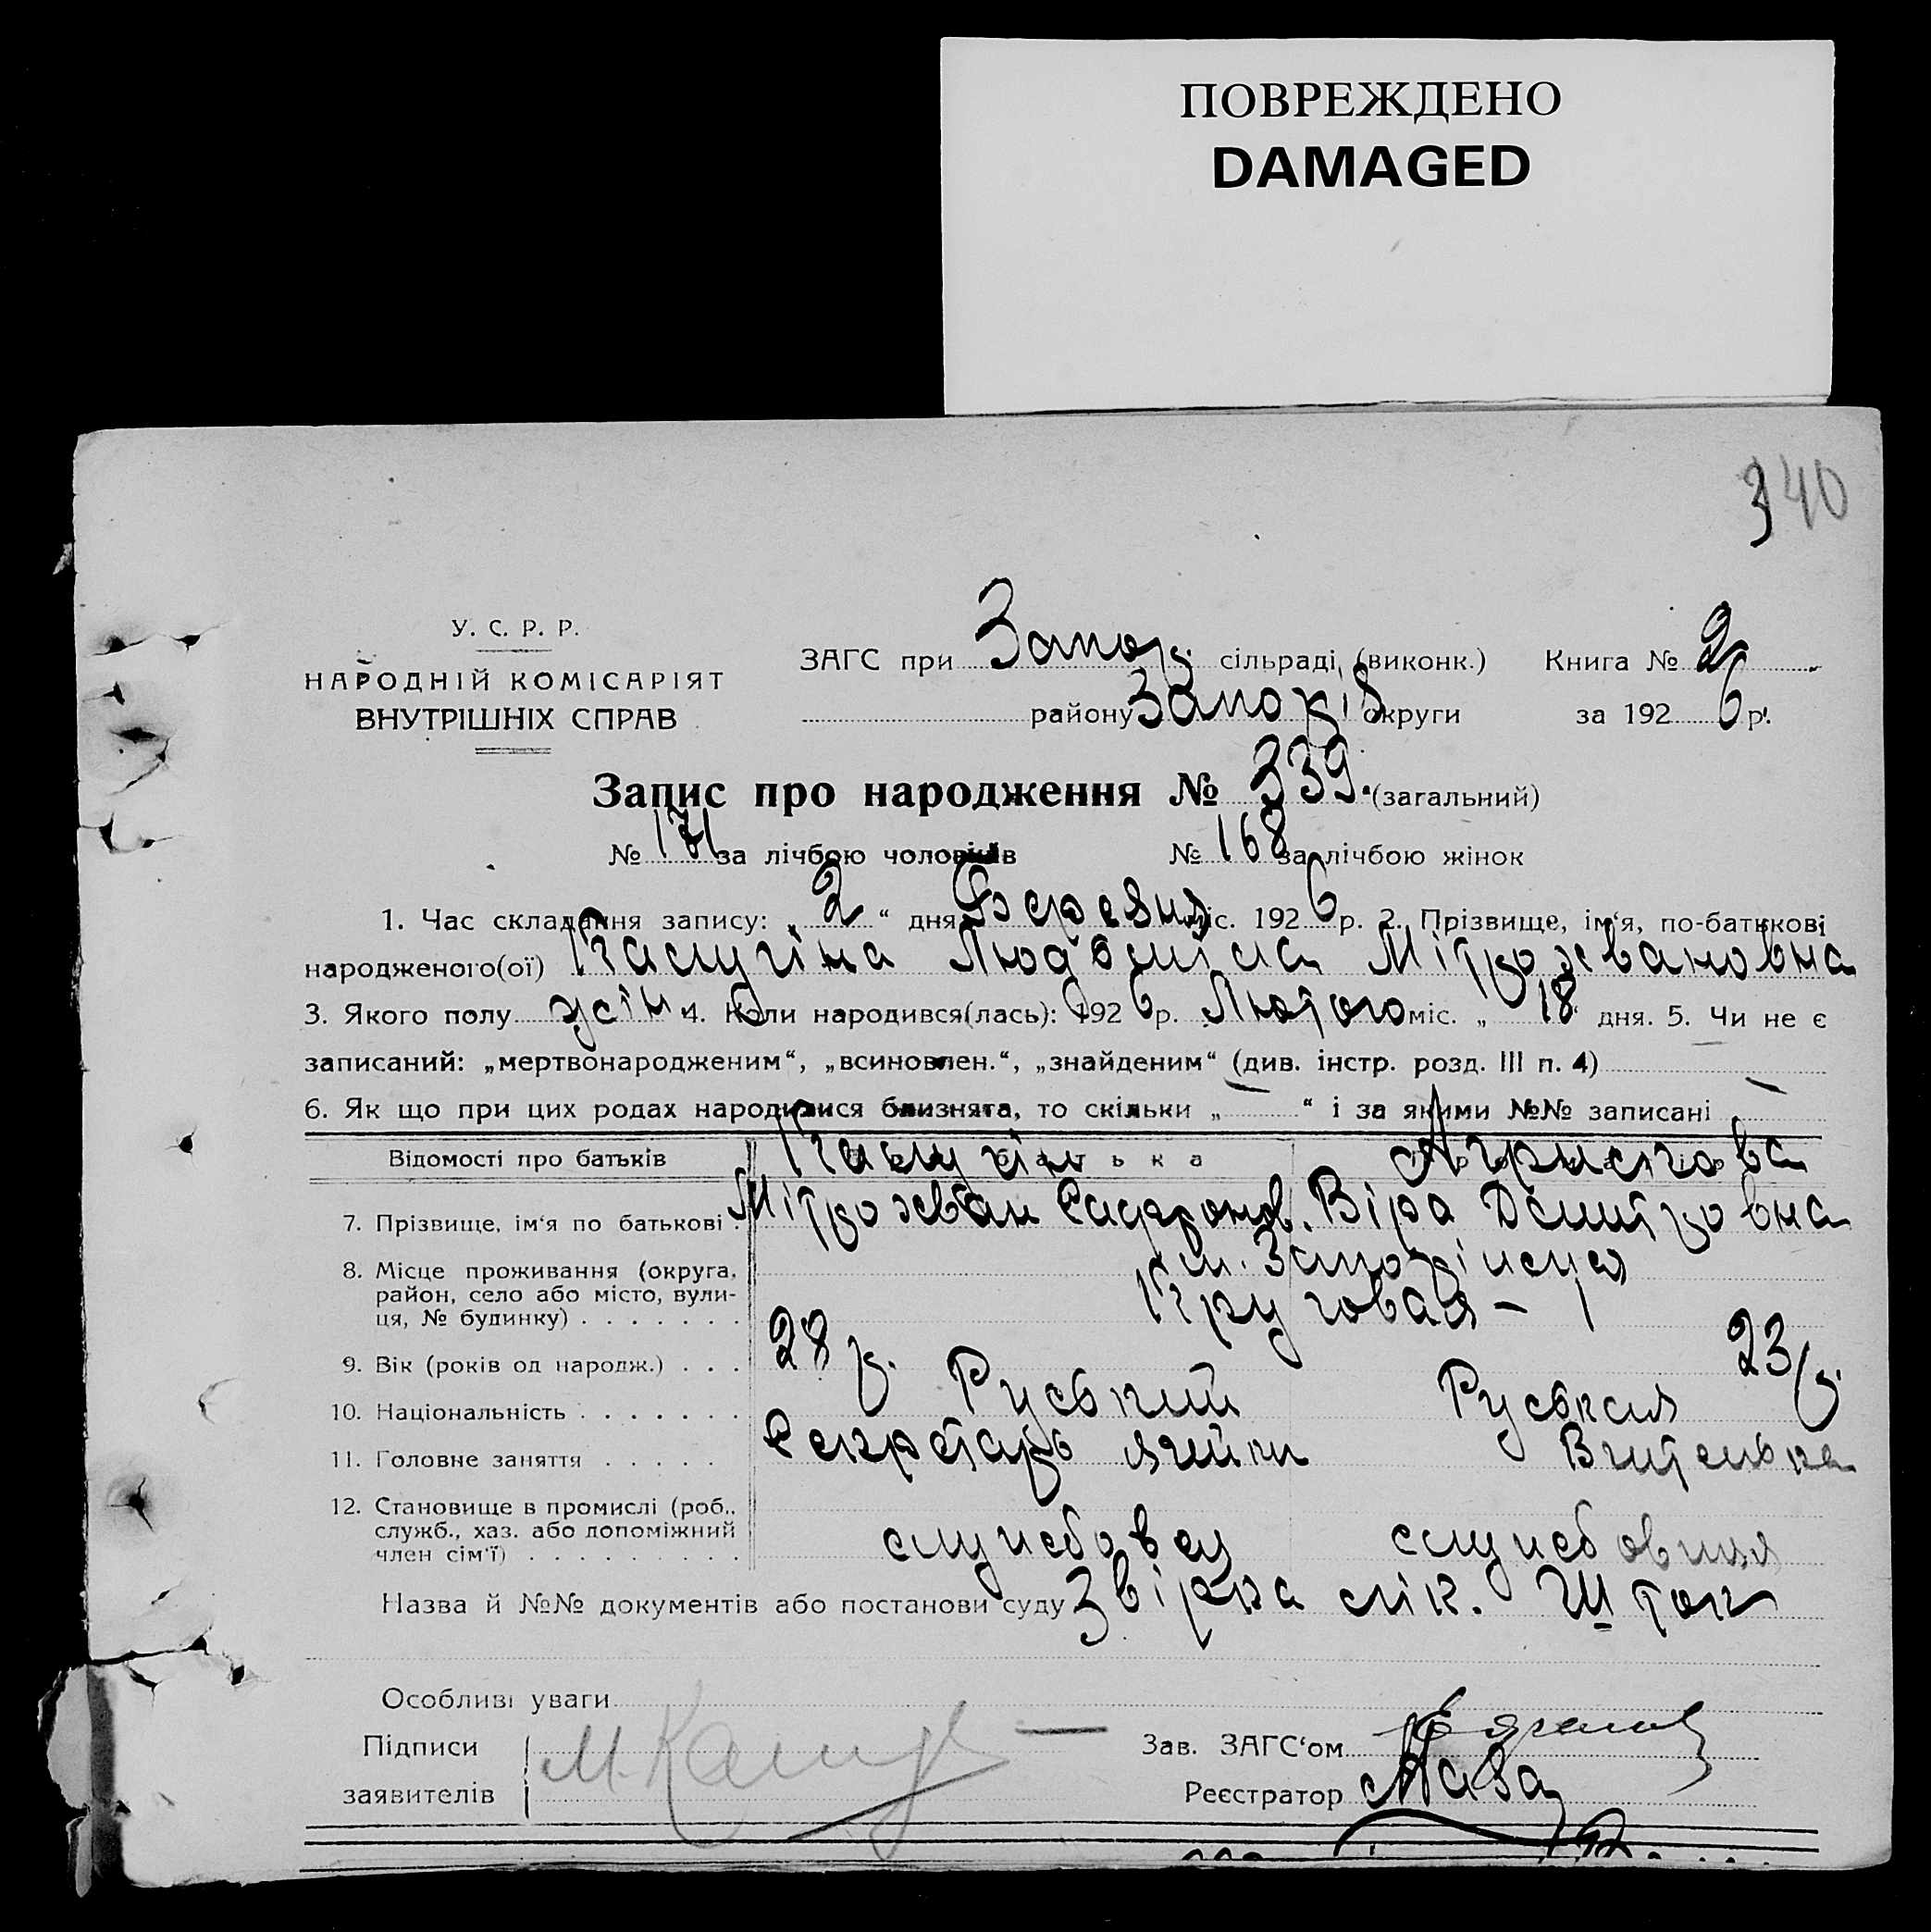 ПОВРЕЖДЕНО
DAMAGED
340
У. С. Р. Р.
НАРОДНІЙ КОМІСАРІЯТ
ВНУТРІШНІХ СПРАВ
ЗАГС при Запор. сільраді (виконк.) Книга № 2
району Запоріз округи за 1926 р.
Запис про народження № 339. (загальний)
№ 171 за лічбою чоловіків № 168 за лічбою жінок
1. Час складання запису: „2“ дня Березня міс. 1926 р. 2. Прізвище, ім‘я, по-батькові
народженого(ої) Калугіна Людміла Мітрохвановна
3. Якого полу жін. 4. Коли народився(лась): 1926 р. Лютого міс. „18“ дня. 5. Чи не є
записаний: „мертвонародженим“, „всиновлен.“, „знайденим“ (див. інстр. розд. III п. 4) —
6. Як що при цих родах народилися близнята, то скільки „—“ і за якими №№ записані —
Відомості про батьків батька
Калугін
7. Прізвище, ім‘я по батькові Мітрохван Сафронов. Віра Дмитровна
8. Місце проживання (округа, район, село або місто, вулиця, № будинку) м. Запоріжжя
Кругова - 1
9. Вік (років од народж.) 28 р. 23 р.
10. Національність Руський Руськая
11. Головне заняття Секретарь ячейки Вчителька
12. Становище в промислі (роб., служб., хаз. або допоміжний член сім‘ї) службовец службовиця
Назва й №№ документів або постанови суду Звірка лік. Шток
Особливі уваги
Підписи
заявителів
Зав. ЗАГС‘ом
Реєстратор